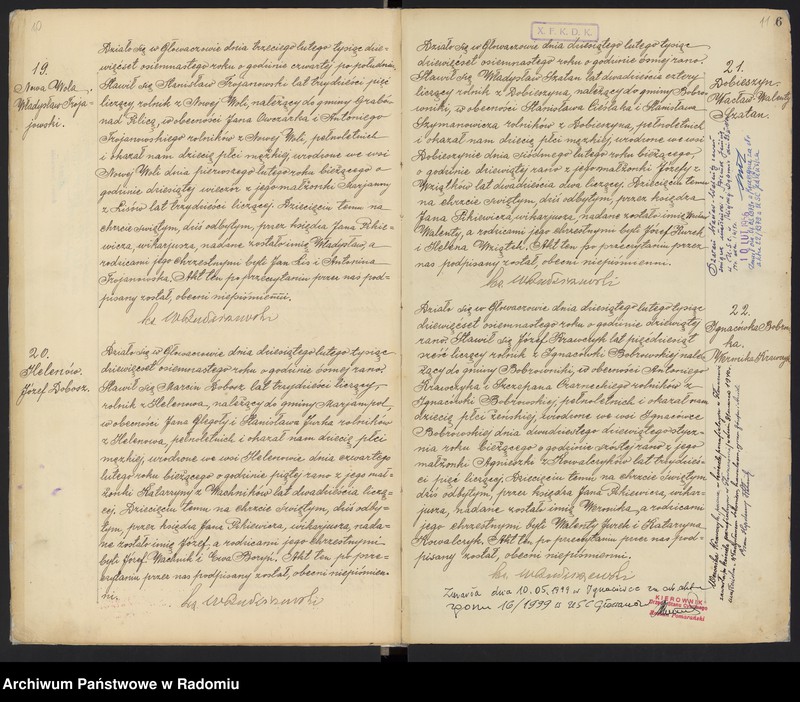 10
19.
Nowa Wola
Władysław Troja-
nowski.
Działo się w Głowaczowie dnia trzeciego lutego tysiąc dzie-
więćset osiemnastego roku o godzinie czwartej po południu.
Stawił się Stanisław Trojanowski lat trzydzieści pięć
liczący, rolnik z Nowej Woli, należący do gminy Grabów
nad Pilicą, w obecności Jana Owczarka i Antoniego
Trojanowskiego rolników z Nowej Woli, pełnoletnich
i okazał nam dziecię płci męzkiej, urodzone we wsi
Nowej Woli dnia pierwszego lutego roku bieżącego o
godzinie dziesiątej wieczór z jego małżonki Marjanny
z Lisów lat trzydzieści liczącej. Dziecięciu temu na
chrzcie świętym, dziś odbytym, przez księdza Jana Pikie-
wicza, wikarjusza, nadane zostało imię Władysław, a
rodzicami jego chrzestnymi byli Jan Lis i Antonina
Trojanowska. Akt ten po przeczytaniu przez nas pod-
pisany został, obecni niepiśmienni.
20.
Helenów.
Józef Dobosz.
Działo się w Głowaczowie, dnia dziesiątego lutego tysiąc
dziewięćset osiemnastego roku o godzinie ósmej rano.
Stawił się Marcin Dobosz lat trzydzieści liczący,
rolnik z Helenowa, należący do gminy Marjampol,
w obecności Jana Głegoły i Stanisława Jurka rolników
z Helenowa, pełnoletnich i okazał nam dziecię płci
męzkiej, urodzone we wsi Helenowie dnia czwartego
lutego roku bieżącego o godzinie piątej rano z jego mał-
żonki Katarzyny z Wachników lat dwadzieścia liczą-
cej. Dziecięciu temu na chrzcie świętym, dziś odby-
tym, przez księdza Jana Pikiewicza, wikarjusza, nada-
ne zostało imię Józef, a rodzicami jego chrzestnymi
byli Józef Wachnik i Ewa Boryń. Akt ten po prze-
czytaniu przez nas podpisany został, obecni niepiśmien-
ni.
X. F. K. D. K.
11 6
21.
Dobieszyn.
Wacław-Walenty
Szatan.
Działo się w Głowaczowie dnia dziesiątego lutego tysiąc
dziewięćset osiemnastego roku o godzinie ósmej rano.
Stawił się Władysław Szatan lat dwadzieścia cztery
liczący rolnik z Dobieszyna, należący do gminy Bobro-
wniki, w obecności Stanisława Cieślaka i Stanisława
Szymanowicza rolników z Dobieszyna, pełnoletnich
i okazał nam dziecię płci męzkiej, urodzone we wsi
Dobieszynie dnia siódmego lutego roku bieżącego,
o godzinie dziewiątej rano z jego małżonki Józefy z
Wziątków lat dwadzieścia dwa liczącej. Dziecięciu temu
na chrzcie świętym, dziś odbytym, przez księdza
Jana Pikiewicza, wikarjusza, nadane zostało imię Wacław
Walenty, a rodzicami jego chrzestnymi byli Józef Kurek
i Helena Wziątek. Akt ten po przeczytaniu przez
nas podpisany został, obecni niepiśmienni.
22.
Ignacówka Bobrows-
ka.
Weronika Krawczyk
Działo się w Głowaczowie dnia dziesiątego lutego tysiąc
dziewięćset osiemnastego roku o godzinie dziewiątej
rano. Stawił się Józef Krawczyk lat pięćdziesiąt
sześć liczący rolnik z Ignacówki Bobrowskiej nale-
żący do gminy Bobrowniki, w obecności Antoniego
Krawczyka i Szczepana Czarneckiego rolników z
Ignacówki Bobrowskiej, pełnoletnich i okazał nam
dziecię płci żeńskiej, urodzone we wsi Ignacówce
Bobrowskiej dnia dwudziestego dziewiątego stycz-
nia roku bieżącego o godzinie szóstej rano z jego
małżonki Agnieszki z Kowalczyków lat trzydzieś-
ci pięć liczącej. Dziecięciu temu na chrzcie świętym
dziś odbytym, przez księdza Jana Pikiewicza, wikar-
jusza, nadane zostało imię Weronika, a rodzicami
jego chrzestnymi byli Walenty Jurek i Katarzyna
Kowalczyk. Akt ten po przeczytaniu przez nas pod-
pisany został, obecni niepiśmienni.
Zmarła dnia 10.05.1999 w Ignacówce
zgonu 16/1999 USC Głowaczów
KIEROWNIK
Archiwum Państwowe w Radomiu